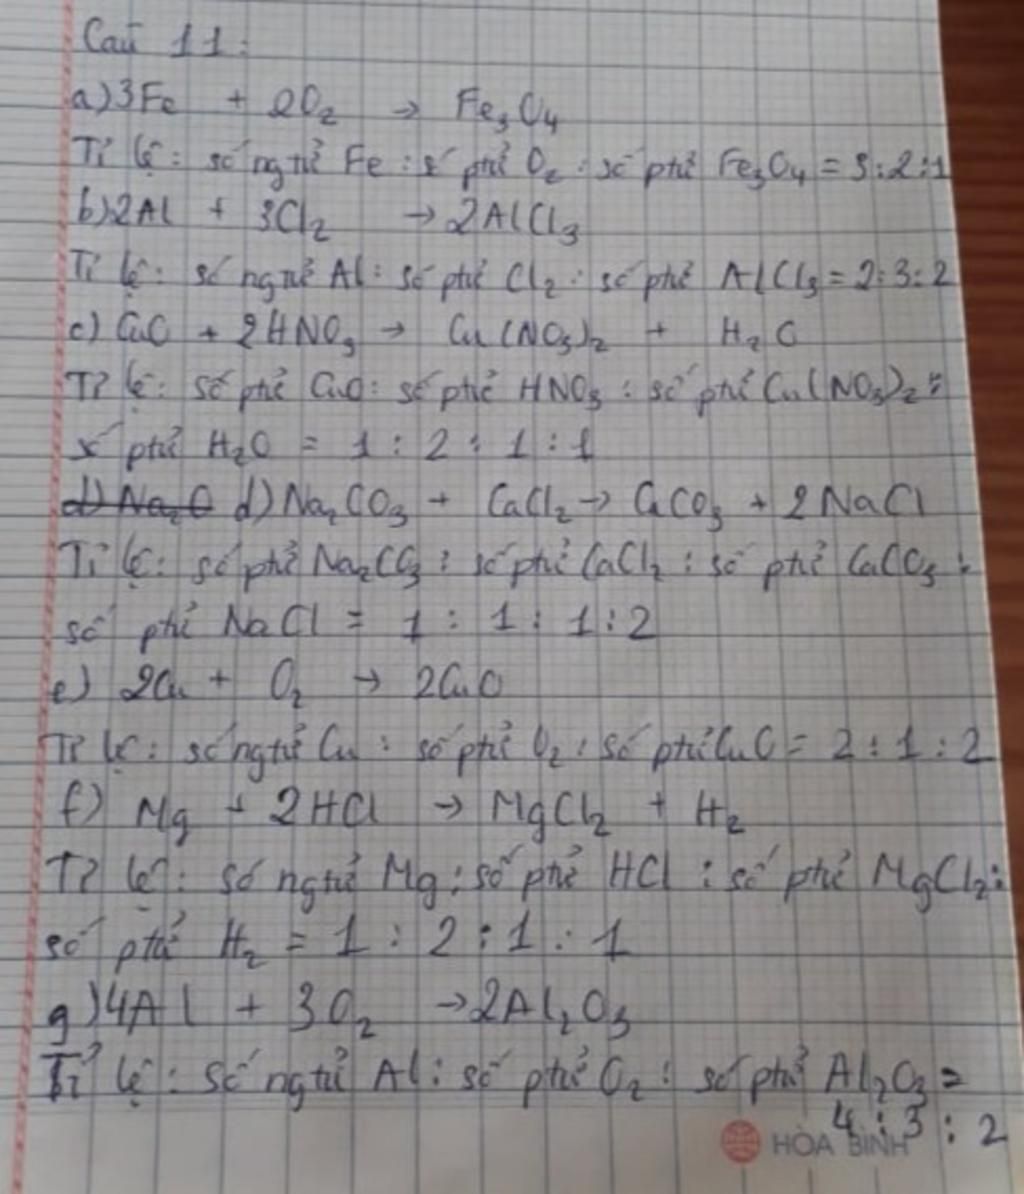 Câu 11:
a) 3Fe + 2O₂ → Fe₃O₄
Tỉ lệ: số ngtử Fe : số phtử O₂ : số phtử Fe₃O₄ = 3:2:1
b) 2Al + 3Cl₂ → 2AlCl₃
Tỉ lệ: số ngtử Al : số phtử Cl₂ : số phtử AlCl₃ = 2:3:2
c) CuO + 2HNO₃ → Cu(NO₃)₂ + H₂O
Tỉ lệ: số phtử CuO : số phtử HNO₃ : số phtử Cu(NO₃)₂ :
số phtử H₂O = 1 : 2 : 1 : 1
d) Na₂O d) Na₂CO₃ + CaCl₂ → CaCO₃ + 2NaCl
Tỉ lệ: số phtử Na₂CO₃ : số phtử CaCl₂ : số phtử CaCO₃ :
số phtử NaCl = 1 : 1 : 1 : 2
e) 2Cu + O₂ → 2CuO
Tỉ lệ: số ngtử Cu : số phtử O₂ : số phtử CuO = 2 : 1 : 2
f) Mg + 2HCl → MgCl₂ + H₂
Tỉ lệ: số ngtử Mg : số phtử HCl : số phtử MgCl₂ :
số phtử H₂ = 1 : 2 : 1 : 1
g) 4Al + 3O₂ → 2Al₂O₃
Tỉ lệ: số ngtử Al : số phtử O₂ : số phtử Al₂O₃ =
4 : 3 : 2
HÒA BÌNH